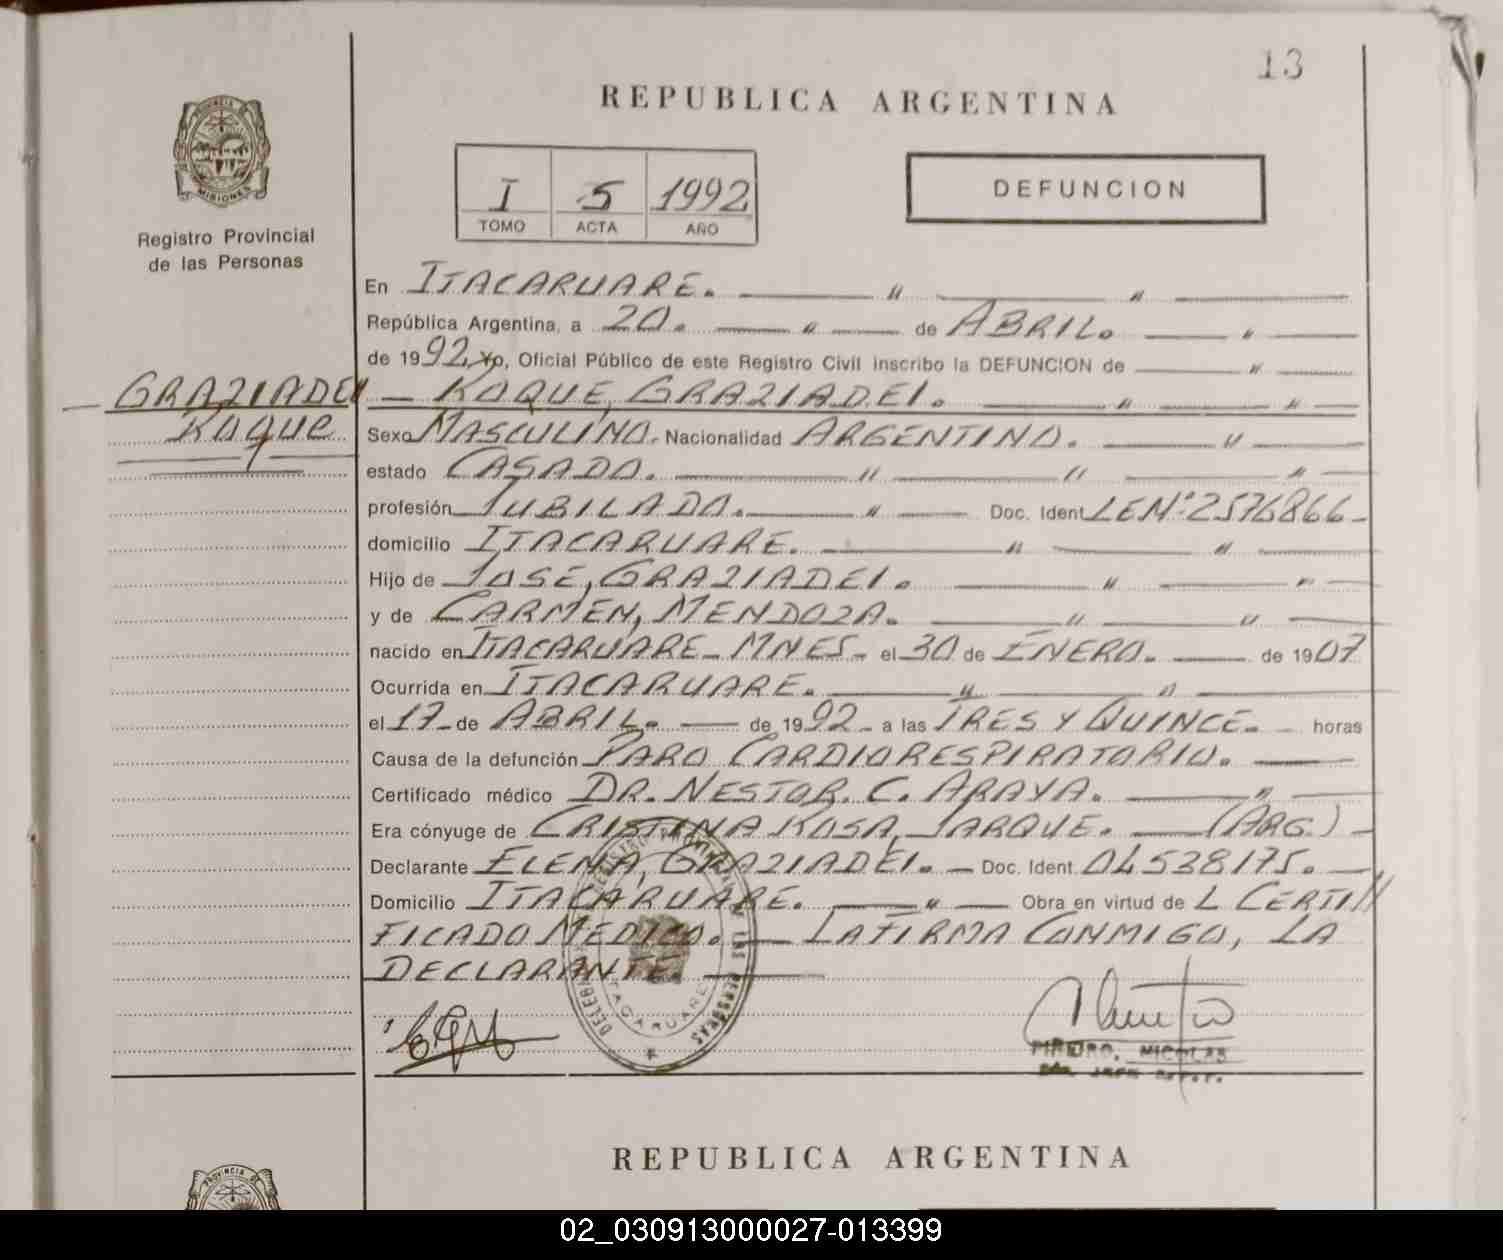 13
REPUBLICA ARGENTINA
PROVINCIA DE MISIONES
I 5 1992
TOMO ACTA AÑO
DEFUNCION
Registro Provincial
de las Personas
En ITACARUARE. — " — " —
República Argentina, a 20. — " — de ABRIL. — " —
de 1992. Yo, Oficial Público de este Registro Civil inscribo la DEFUNCION de — " —
GRAZIADEI — ROQUE, GRAZIADEI. — " — " —
Roque Sexo MASCULINO. Nacionalidad ARGENTINO. — " —
estado CASADO. — " — " — " —
profesión JUBILADO. — " — Doc. Ident. LEN:2576866-
domicilio ITACARUARE. — " — " —
Hijo de JOSE, GRAZIADEI. — " — " —
y de CARMEN, MENDOZA. — " — " —
nacido en ITACARUARE - MNES - el 30 de ENERO. — de 1907
Ocurrida en ITACARUARE. — " — " —
el 17 - de ABRIL. — de 1992 - a las TRES Y QUINCE. - horas
Causa de la defunción PARO CARDIORESPIRATORIO. —
Certificado médico DR. NESTOR. C. ARAYA. — " —
Era cónyuge de CRISTINA ROSA, JARQUE. — (ARG.) -
Declarante ELENA, GRAZIADEI. — Doc. Ident. 04538175. —
Domicilio ITACARUARE. — " — Obra en virtud de L CERTI//
FICADO MEDICO. — LA FIRMA CONMIGO, LA
DECLARANTE. —
ITACARUARE
PIÑEIRO, NICOLAS
REPUBLICA ARGENTINA
PROVINCIA DE
02_030913000027-013399